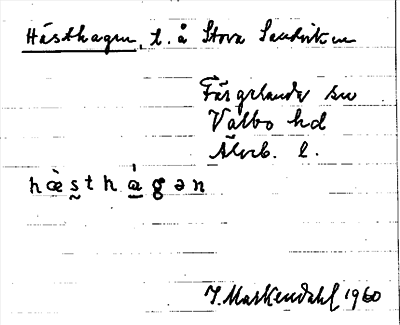 Hästhagen, t. å Stora Sandviken
Färgelanda sn
Valbo hd
Älvsb. l.
hæ̀s̰thàgən
J. Markendahl 1960